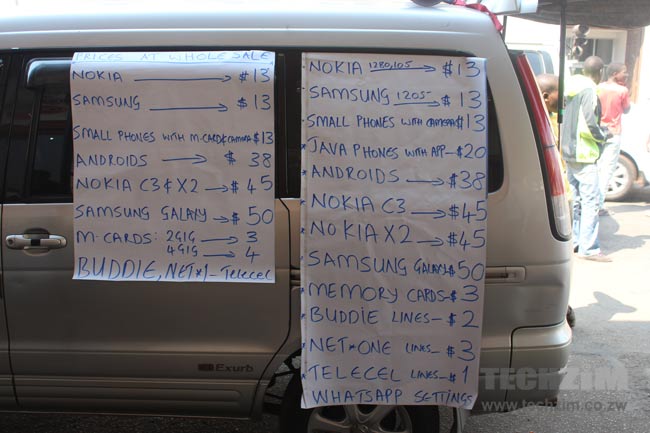 PRICES AT WHOLESALE
NOKIA → $13
SAMSUNG → $13
SMALL PHONES WITH M.CARD & CAMERA $13
ANDROIDS → $38
NOKIA C3 & X2 → $45
SAMSUNG GALAXY → $50
M. CARDS: 2GIG → 3
4GIG → 4
BUDDIE, NET*1 - Telecel
NOKIA 1280, 105 → $13
SAMSUNG 1205 → $13
SMALL PHONES WITH CAMERA $13
JAVA PHONES WITH APP - $20
ANDROIDS → $38
NOKIA C3 → $45
NOKIA X2 → $45
SAMSUNG GALAXY $50
MEMORY CARDS - $3
BUDDIE LINES - $2
NET*ONE LINES - $3
TELECEL LINES - $1
WHATSAPP SETTINGS
Exurb
TECHZIM
www.techzim.co.zw